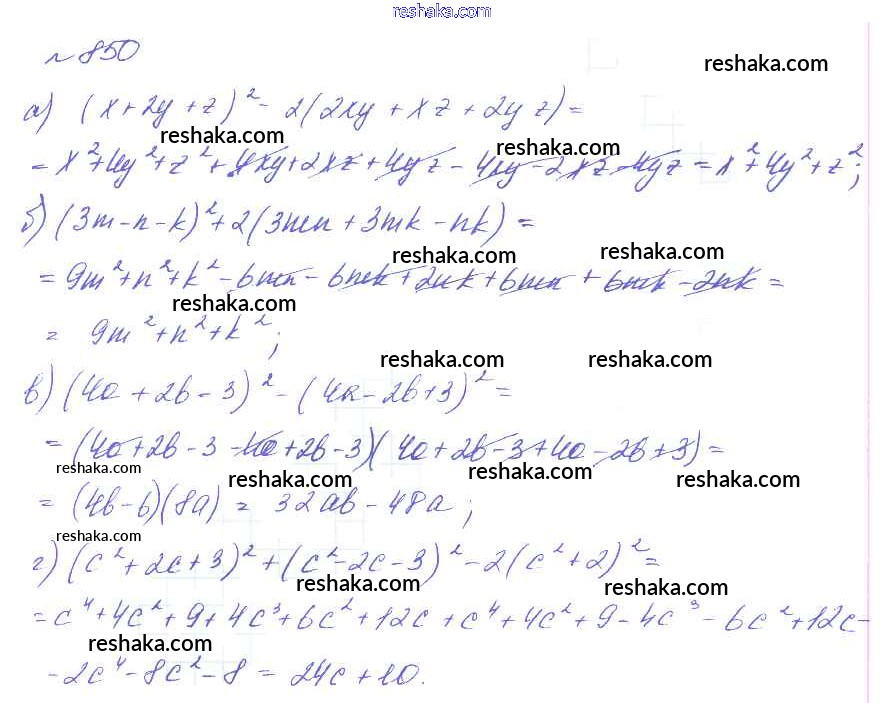 reshaka.com
№ 850
reshaka.com
а) (x + 2y + z)² - 2(2xy + xz + 2yz) =
reshaka.com
reshaka.com
= x² + 4y² + z² + 4xy + 2xz + 4yz - 4xy - 2xz - 4yz = x² + 4y² + z²;
б) (3m - n - k)² + 2(3mn + 3mk - nk) =
reshaka.com
reshaka.com
= 9m² + n² + k² - 6mn - 6mk + 2nk + 6mn + 6mk - 2nk =
reshaka.com
= 9m² + n² + k²;
reshaka.com
reshaka.com
в) (4a + 2b - 3)² - (4a - 2b + 3)² =
= (4a + 2b - 3 - 4a + 2b - 3)(4a + 2b - 3 + 4a - 2b + 3) =
reshaka.com
reshaka.com
reshaka.com
reshaka.com
= (4b - 6)(8a) = 32ab - 48a;
reshaka.com
г) (c² + 2c + 3)² + (c² - 2c - 3)² - 2(c² + 2)² =
reshaka.com
reshaka.com
= c⁴ + 4c² + 9 + 4c³ + 6c² + 12c + c⁴ + 4c² + 9 - 4c³ - 6c² + 12c -
reshaka.com
- 2c⁴ - 8c² - 8 = 24c + 10.